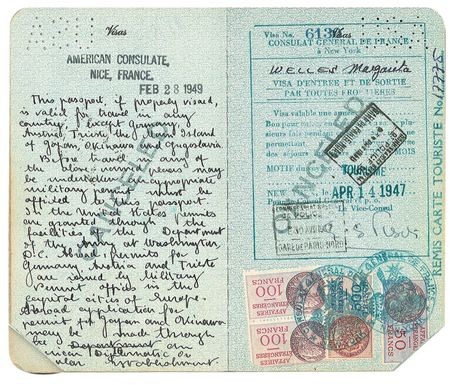 Visas
AMERICAN CONSULATE,
NICE, FRANCE.
FEB 28 1949
This passport, if properly visaed,
is valid for travel in any
country, Except Germany,
Austria, Trieste, the Main Island
of Japan, Okinawa and Yugoslavia.
Before travel in any of
the above named places may
be undertaken an appropriate
military permit must be
affixed to this passport.
In the United States permits
are granted through the
facilities of the Department
of the Army at Washington,
D.C. Abroad, permits for
Germany, Austria and Trieste
are issued by Military
Permit offices in the
capital cities of Europe.
Abroad application for
permit to Japan and Okinawa
may be made through
an
Diplomatic or
Establishment.
CANCELLED
Visas
Visa No. 6132
CONSULAT GENERAL DE FRANCE
à New York
WELLES Margarita
VISA D'ENTREE ET DE SORTIE
PAR TOUTES FRONTIERES
Visa valable une année
Bon pour
plusieurs fois pendant
permettant
des séjours
MOTIF
TOURISME
NEW APR 14 1947
Pour le Consul Général de France
Le Vice-Consul
CANCELLED
GARE DE PARIS-NORD
REMIS CARTE TOURISTE No. 17775
AFFAIRES ETRANGERES
100
FRANCS
100
FRANCS
100
FRANCS
50
FRANCS